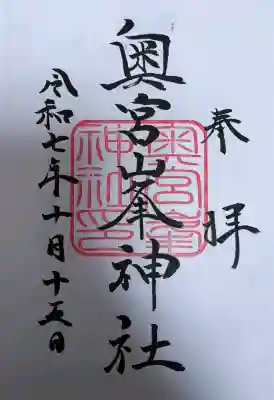 奉拝
奥宮峯神社
奥宮峯神社印
令和七年十月十五日